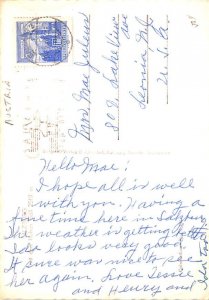 AUSTRIA
Mrs Mae Julius
302 Lakeview
Ave
Leonia N.J.
U.S.A.
Hello Mae:
I hope all is well
with you. Having a
fine time here in Salzburg
The weather is getting better
Ida looks very good.
It sure was nice to see
her again. Love Jessie
and Henry and
Ida too